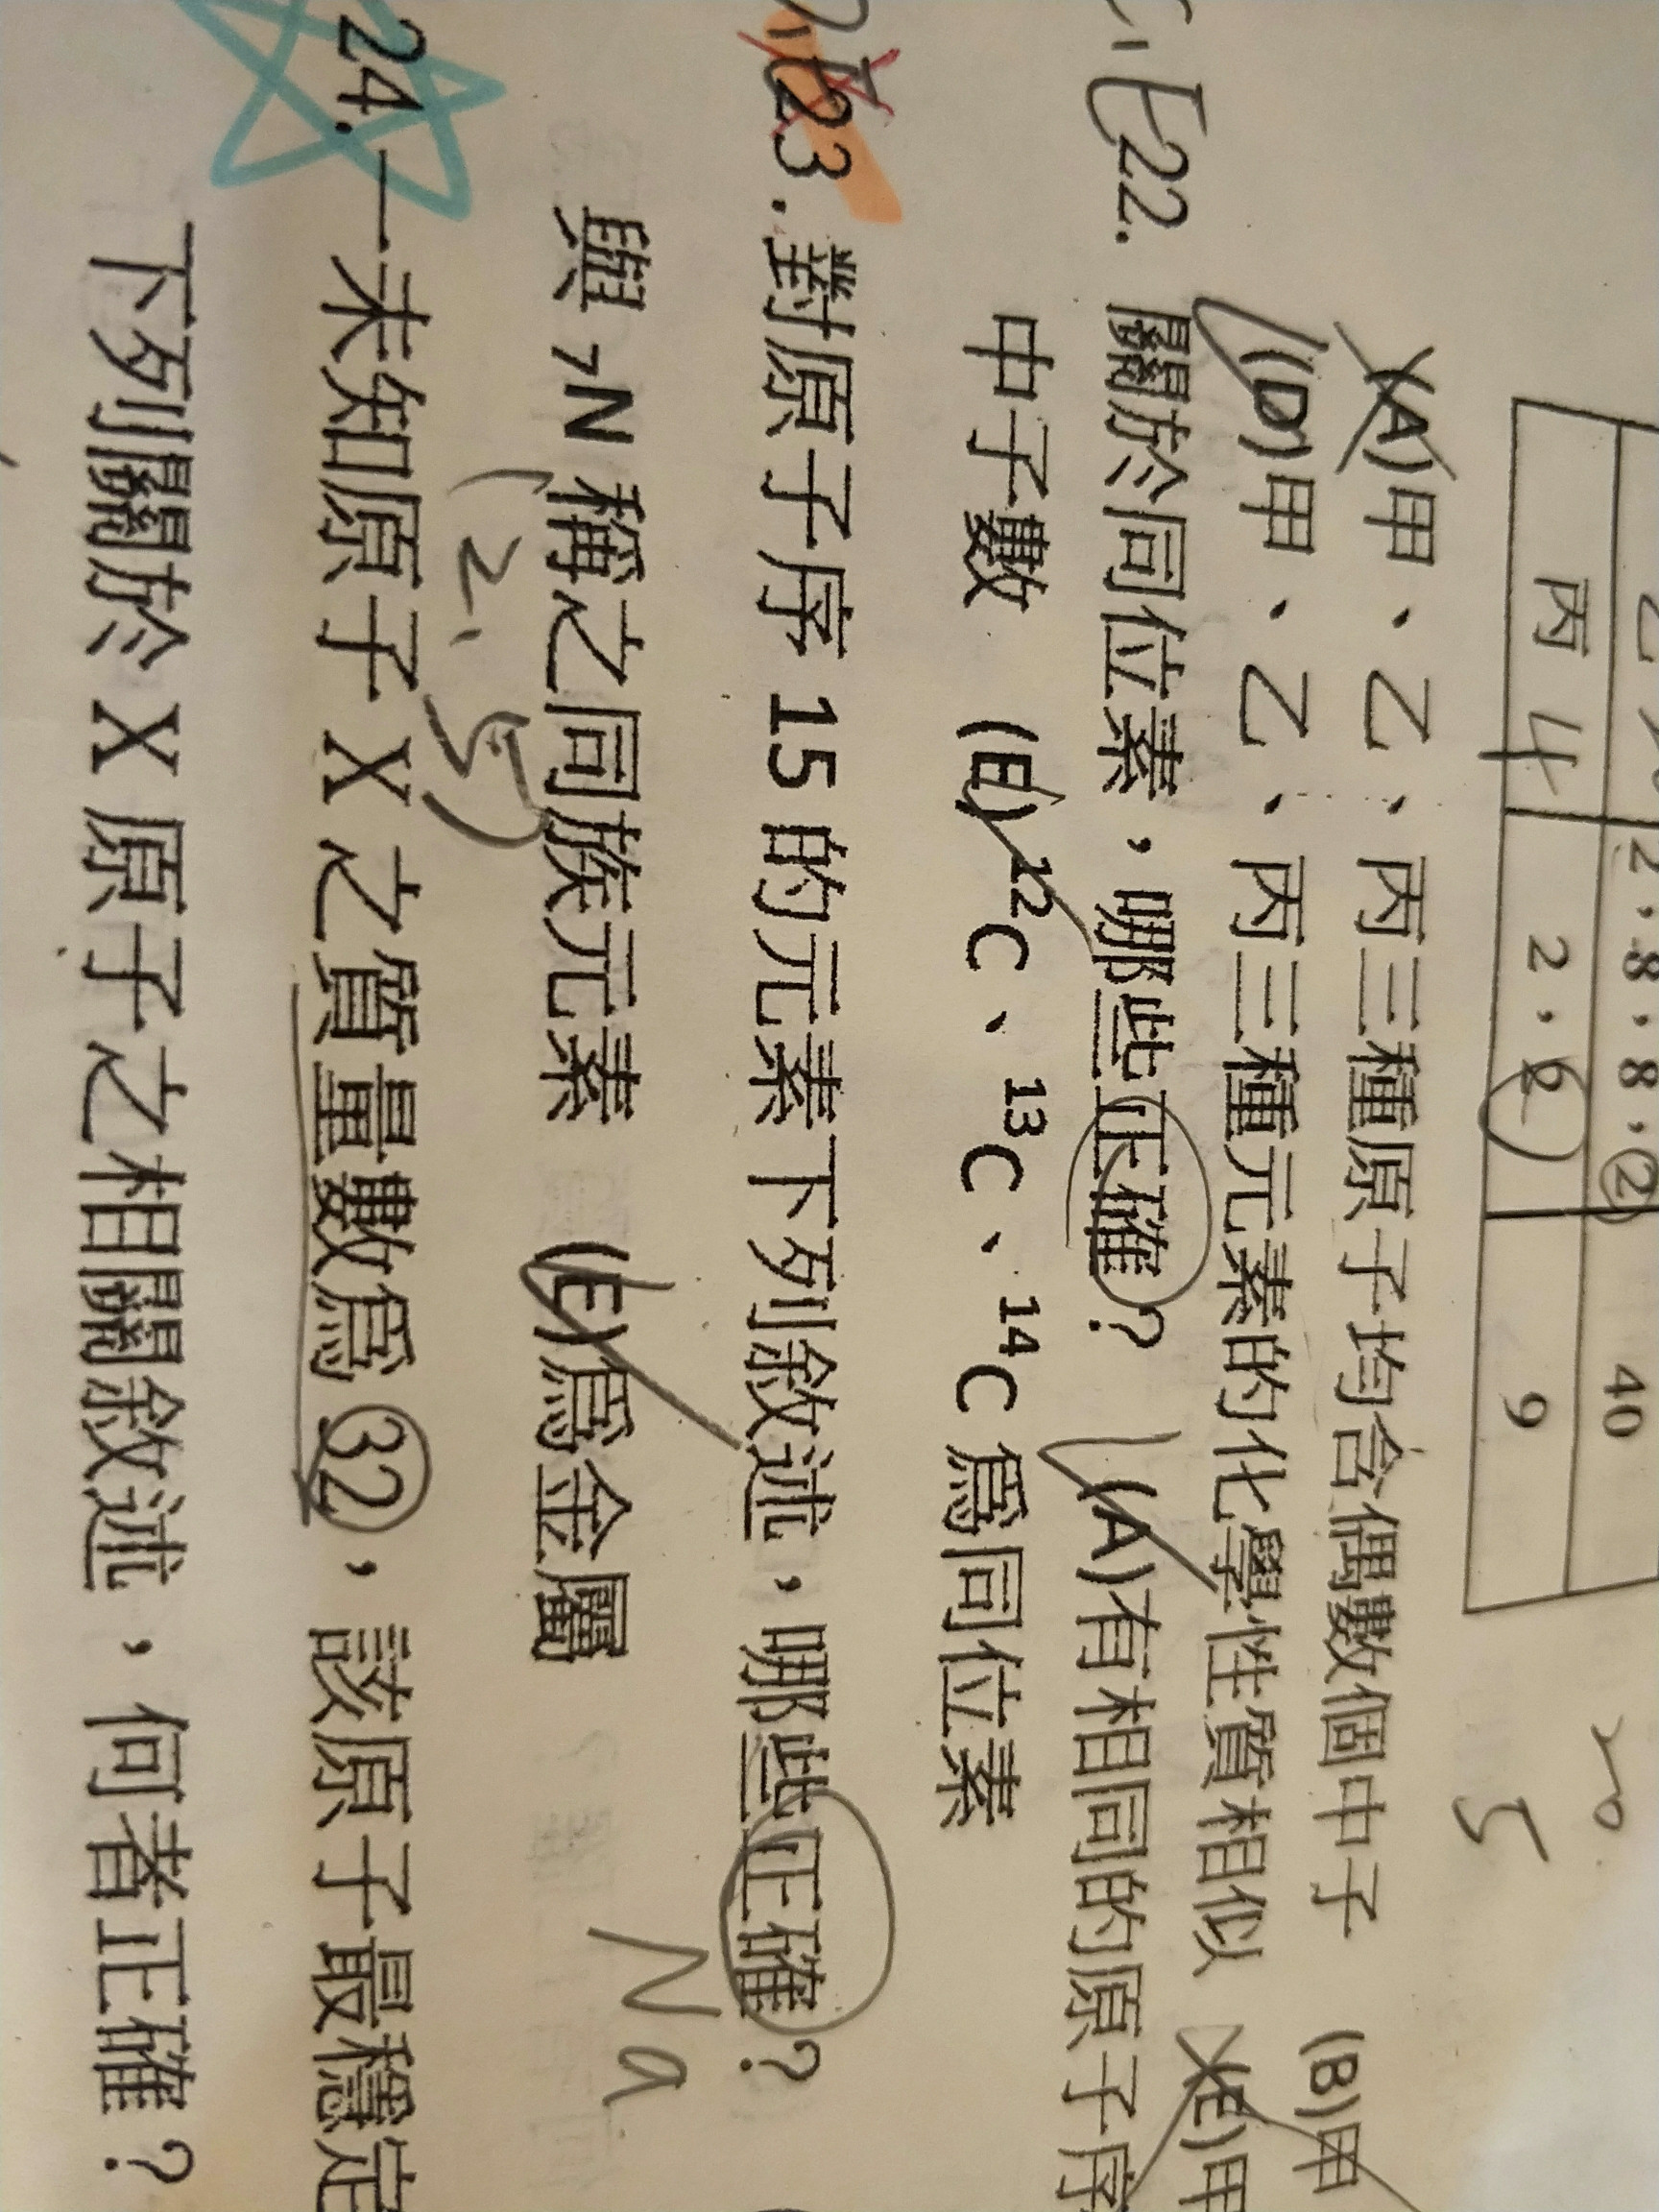 乙
2，8，8，2
40
20
丙
4
2，2
9
5
(A)甲、乙、丙三種原子均含偶數個中子 (B)甲
(D)甲、乙、丙三種元素的化學性質相似 (E)甲
22. 關於同位素，哪些正確？ (A)有相同的原子序
中子數 (E)¹²C、¹³C、¹⁴C 為同位素
23. 對原子序 15 的元素下列敘述，哪些正確？
與 ₇N 稱之同族元素 (E)為金屬
Na
2, 5
24. 一未知原子 X 之質量數為 32，該原子最穩定
下列關於 X 原子之相關敘述，何者正確？